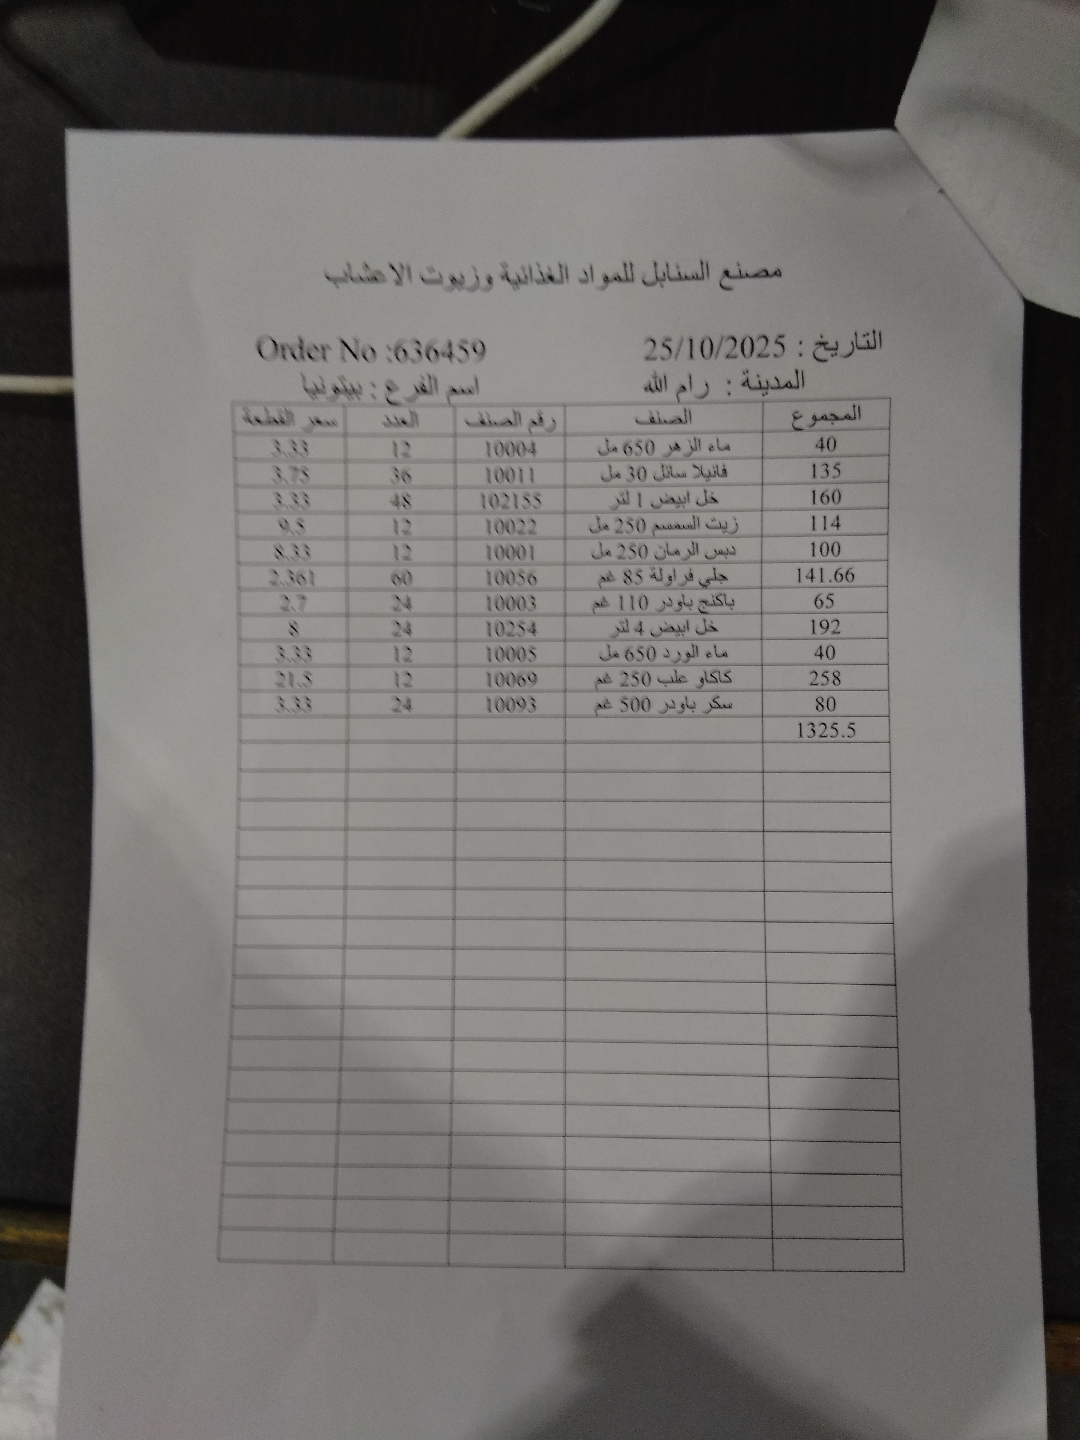 مصنع السنابل للمواد الغذائية وزيوت الاعشاب
التاريخ : 25/10/2025 Order No :636459
المدينة : رام الله اسم الفرع : بيتونيا
المجموع الصنف رقم الصنف العدد سعر القطعة
40 ماء الزهر 650 مل 10004 12 3.33
135 فانيلا سائل 30 مل 10011 36 3.75
160 خل ابيض 1 لتر 102155 48 3.33
114 زيت السمسم 250 مل 10022 12 9.5
100 دبس الرمان 250 مل 10001 12 8.33
141.66 جلي فراولة 85 غم 10056 60 2.361
65 باكنج باودر 110 غم 10003 24 2.7
192 خل ابيض 4 لتر 10254 24 8
40 ماء الورد 650 مل 10005 12 3.33
258 كاكاو علب 250 غم 10069 12 21.5
80 سكر باودر 500 غم 10093 24 3.33
1325.5